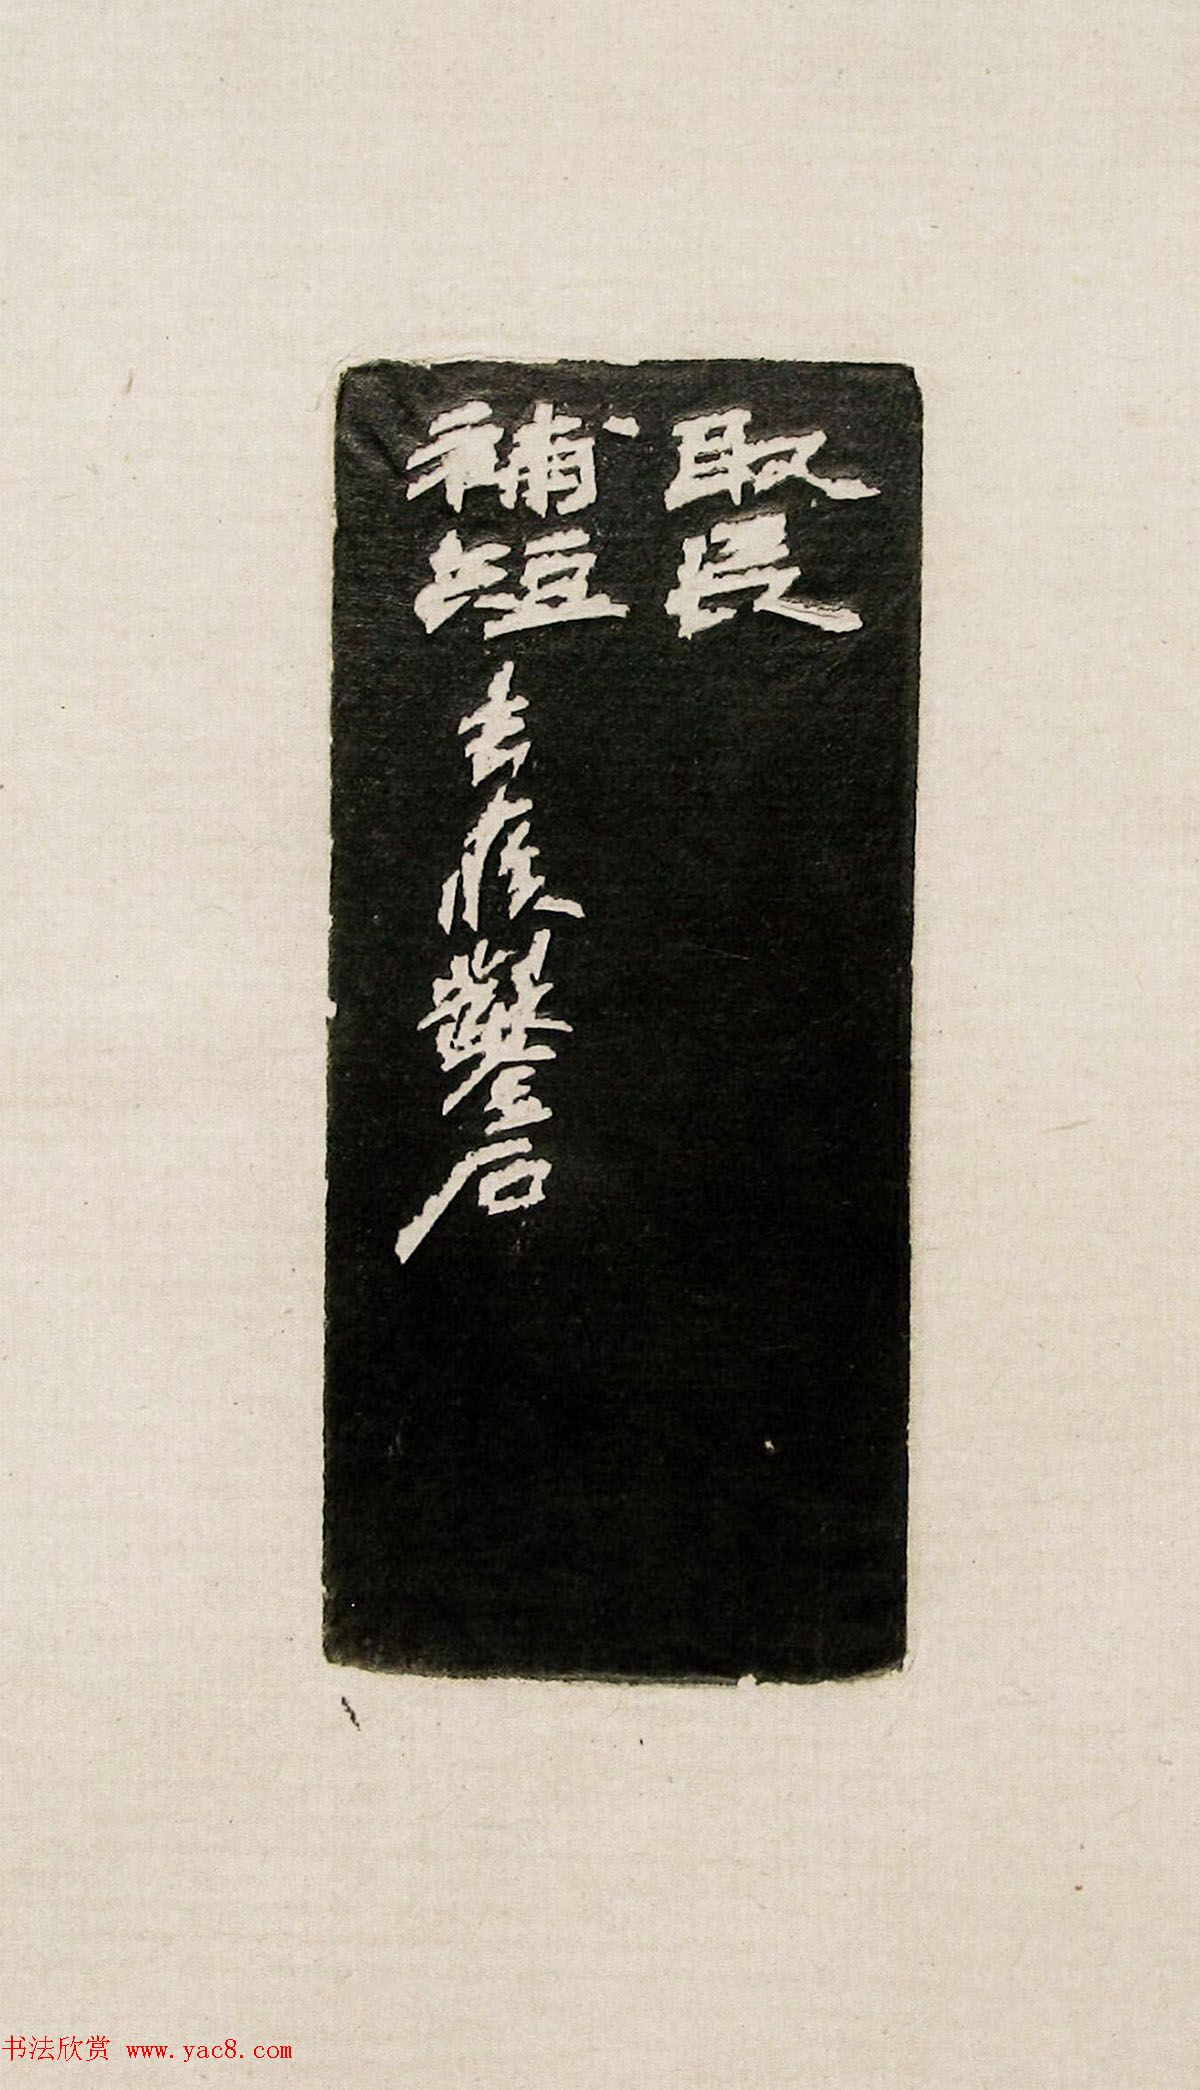 取長
補短去疾鑿石
书法欣赏 www.yac8.com